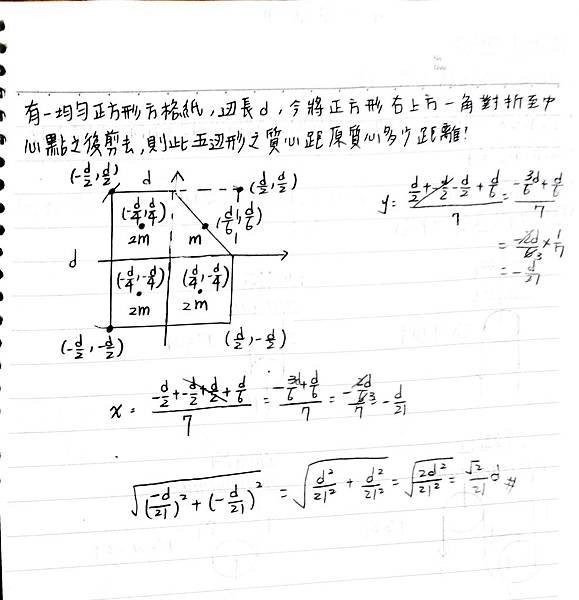 有一均勻正方形方格紙,边長d,今將正方形右上方一角對折至中
心點之後剪去,則此五边形之質心距原質心多少距離!
(-d/2, d/2) d (d/2, d/2)
(-d/4, d/4) (d/6, d/6)
2m m
d
(-d/4, -d/4) (d/4, -d/4)
2m 2m
(-d/2, -d/2) (d/2, -d/2)
y = (d/2 + -d/2 - d/2 + d/6)/7 = (-3d/6 + d/6)/7
= -2d/6 3 × 1/7
= -d/21
x = (-d/2 + -d/2 + d/2 + d/6)/7 = (-3d/6 + d/6)/7 = (-2d/6 3)/7 = -d/21
√((-d/21)² + (-d/21)²) = √(d²/21² + d²/21²) = √(2d²/21²) = √2/21 d #